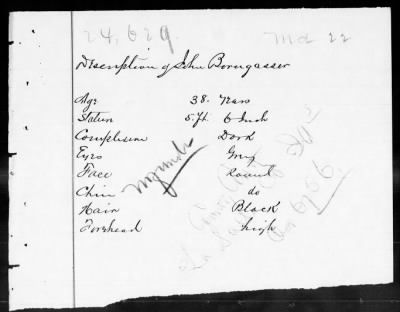 24,629.
Md 22
Description of John Borngasser
Age 38. Years
Statur 5 ft 6 Inch
Complexion Dark
Eyes Grey
Face Round
Chin do
Hair Black
Forehead high